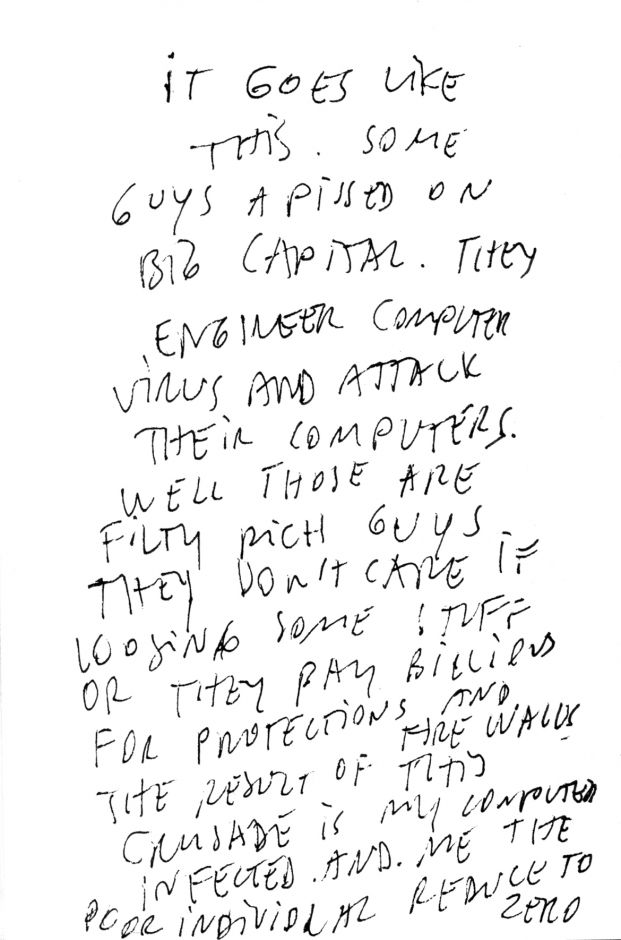 iT GOES LIKE
THIS. SOME
GUYS A PISSED ON
BIG CAPITAL. THEY
ENGINEER COMPUTER
VIRUS AND ATTACK
THEIR COMPUTERS.
WELL THOSE ARE
FILTY RICH GUYS
THEY DON'T CARE IF
LOOSING SOME STUFF
OR THEY PAY BILLIONS
FOR PROTECTIONS AND
FIRE WALLS
THE RESULT OF THIS
CRUSADE IS MY COMPUTER
INFECTED. AND. ME THE
POOR INDIVIDUAL REDUCE TO
ZERO